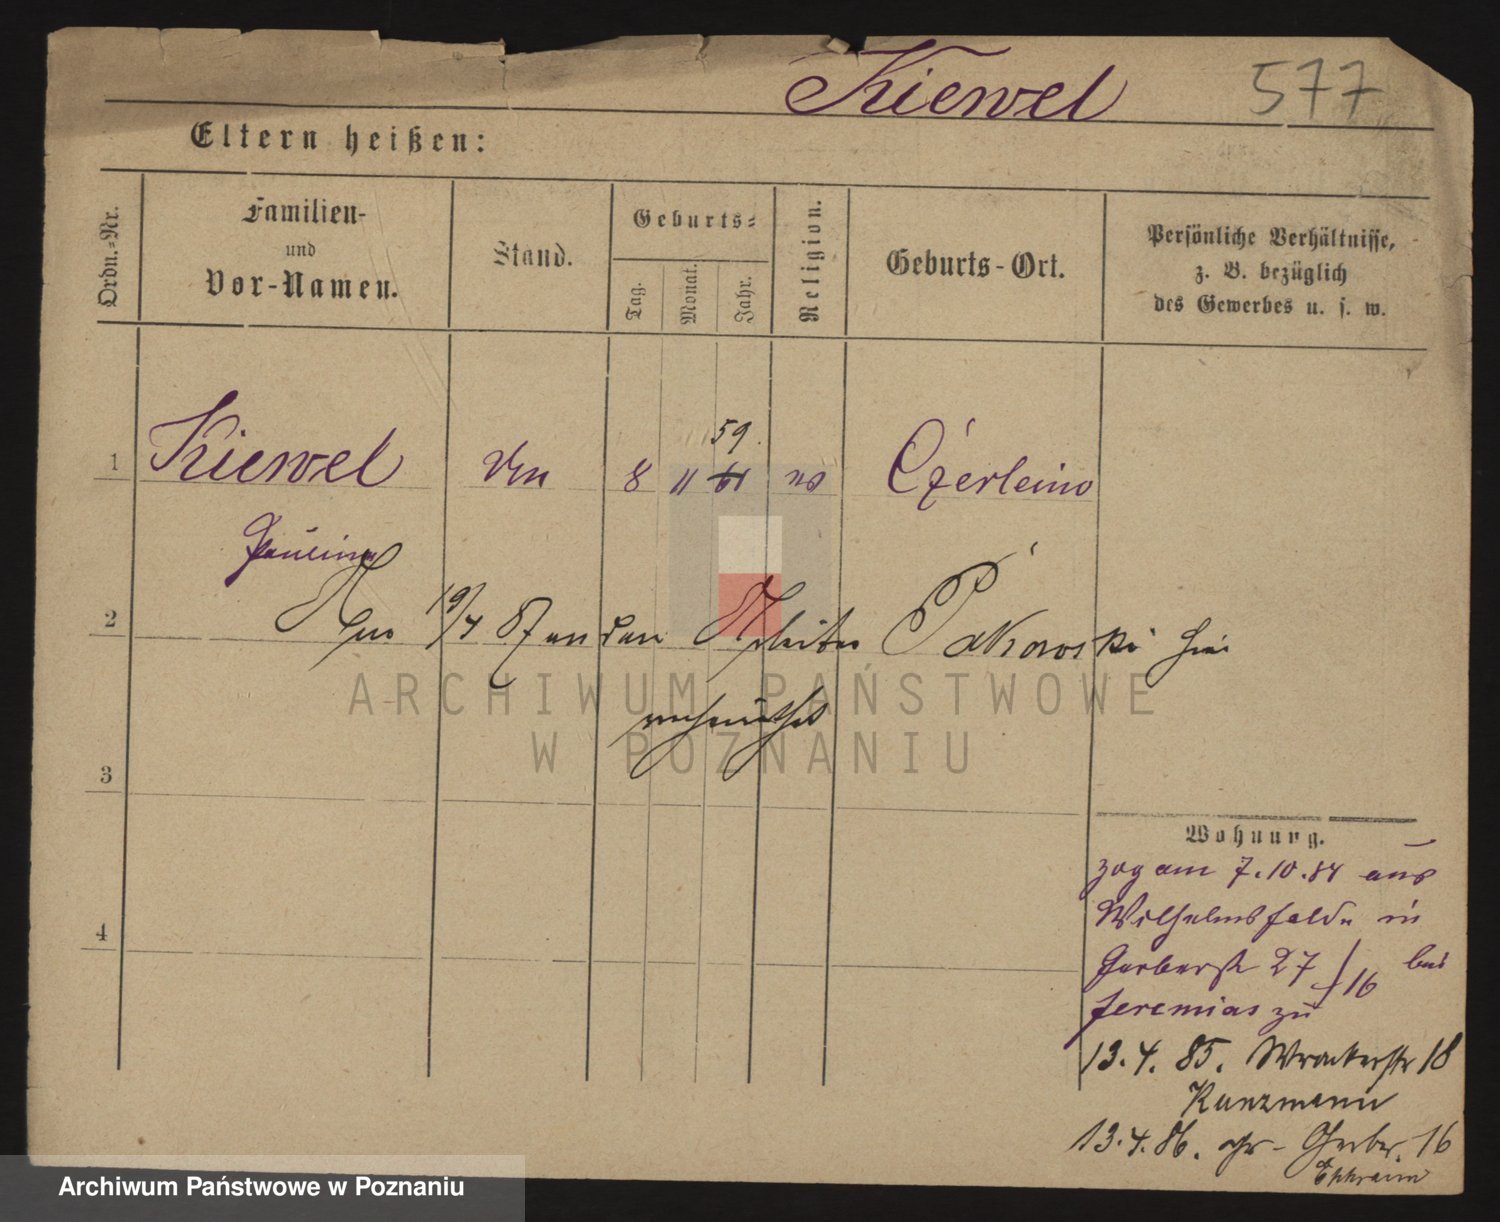 Kiewel 577
Eltern heißen:
Ordn.-Nr.
Familien-
und
Vor-Namen.
Stand.
Geburts-
Tag.
Monat.
Jahr.
Religion.
Geburts-Ort.
Persönliche Verhältnisse,
z. B. bezüglich
des Gewerbes u. s. w.
59.
1 Kiewel 8 11 61 Czerleino
Paulina
2 19/4 87 an den Arbeiter Pakowski hier
verheirathet
ARCHIWUM PAŃSTWOWE
W POZNANIU
3
Wohnung.
zog am 7.10.84 aus
Wilhelmsfelde in
4
Gerberstr 27/16 bei
Jeremias zu
13.4.85. Wronkerstr 18
Kunzmann
13.4.86. Gerber. 16
Ephraim
Archiwum Państwowe w Poznaniu